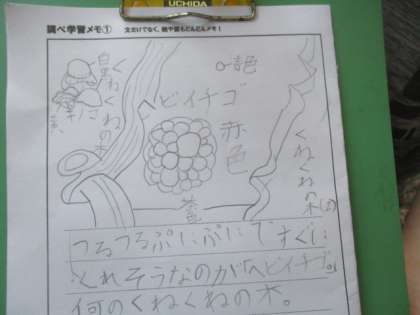 UCHIDA
調べ学習メモ① 文だけでなく、絵や図もどんどんメモ！
ヘビイチゴ
赤色
くねくねの木
くねくねの木
つるつるぷにぷにですぐに
くれそうなのが「ヘビイチゴ」。
何のくねくねの木。